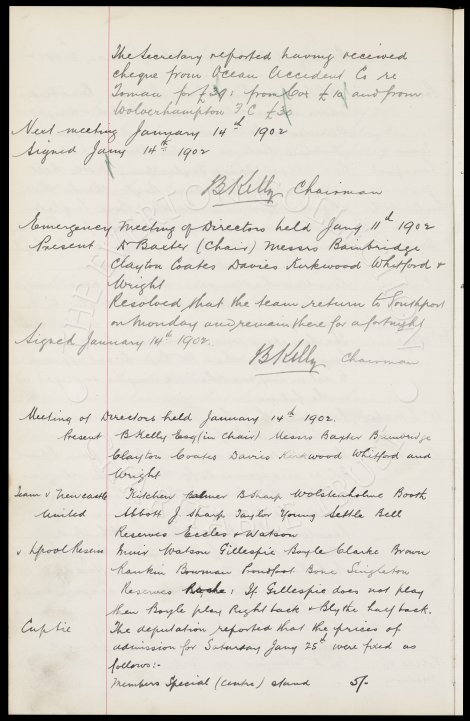 The Secretary reported having received
cheque from Ocean Accident Co re
Toman for £30: from Cox £10 and from
Wolverhampton F C £30
Next meeting January 14th 1902
Signed Jany 14th 1902
BKelly Chairman
Emergency Meeting of Directors held Jany 11th 1902
Present Dr Baxter (Chair) Messrs Bainbridge
Clayton Coates Davies Kirkwood Whitford &
Wright
Resolved that the team return to Southport
on Monday and remain there for a fortnight
Signed January 14th 1902.
BKelly Chairman
Meeting of Directors held January 14th 1902.
Present BKelly Esq (in Chair) Messrs Baxter Bainbridge
Clayton Coates Davies Kirkwood Whitford and
Wright
Team v Newcastle Kitchen Balmer B Sharp Wolstenholme Booth
United Abbott J. Sharp Taylor Young Settle Bell
Reserves Eccles & Watson
v Lpool Reserve Muir Watson Gillespie Boyle Clarke Brown
Rankin Bowman Proudfoot Bone Singleton
Reserves Roche: If Gillespie does not play
then Boyle play Right back & Blythe half back.
Cup tie The deputation reported that the prices of
admission for Saturday Jany 25th were fixed as
follows:-
Members Special (centre) stand 5/-